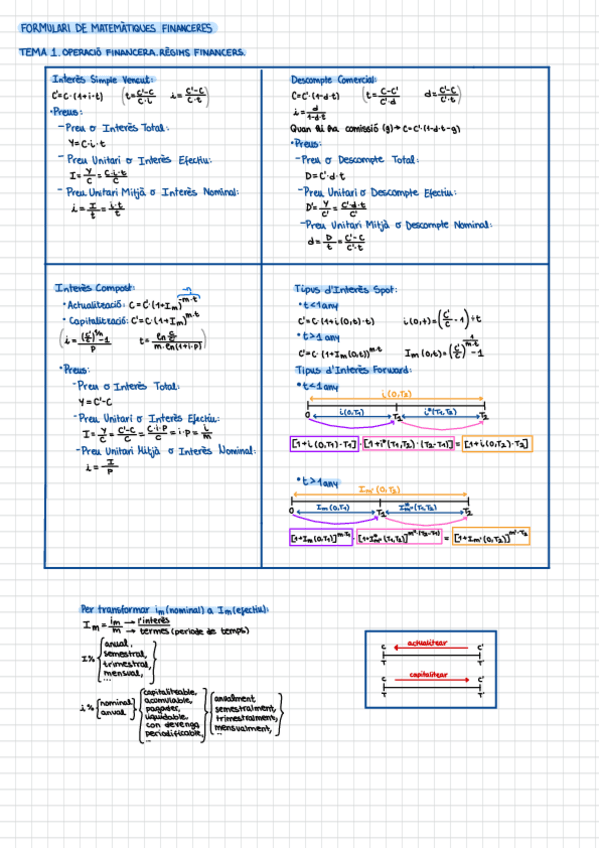 FORMULARI DE MATEMÀTIQUES FINANCERES
TEMA 1. OPERACIÓ FINANCERA. RÈGIMS FINANCERS.
Interès Simple Vençut:
C'=C·(1+i·t) (t=C'-C/C·i i=C'-C/C·t)
•Preus:
- Preu o Interès Total:
Y=C·i·t
- Preu Unitari o Interès Efectiu:
I=Y/C=C·i·t/C
- Preu Unitari Mitjà o Interès Nominal:
i=I/t=i·t/t
Descompte Comercial:
C=C'·(1-d·t) (t=C'-C/C'·d d=C'-C/C'·t)
i=d/1-d·t
Quan hi ha comissió (g)→C=C'·(1-d·t-g)
•Preus:
-Preu o Descompte Total:
D=C'·d·t
-Preu Unitari o Descompte Efectiu:
D'=Y/C'=C'·d·t/C'
-Preu Unitari Mitjà o Descompte Nominal:
d=D/t=C'-C/C'·t
Interès Compost:
-n
•Actualització: C=C'·(1+Im)^-m·t
•Capitalització: C'=C·(1+Im)^m·t
•Preus:
-Preu o Interès Total:
Y=C'-C
-Preu Unitari o Interès Efectiu:
I=Y/C=C'-C/C=C·i·P/C=i·P=i/m
-Preu Unitari Mitjà o Interès Nominal:
i=I/P
Tipus d'Interès Spot:
•t<1any
C'=C·(1+i(0,t)·t) i(0,t)=(C'/C-1)÷t
•t>1any
C'=C·(1+Im(0,t))^m·t Im(0,t)=(C'/C)^1/m·t-1
Tipus d'Interès Forward:
•t<1any
i(0,T2)
0 i(0,T1) T1 i*(T1,T2) T2
[1+i(0,T1)·T1]·[1+i*(T1,T2)·(T2-T1)]=[1+i(0,T2)·T2]
•t>1any
Im'(0,T2)
0 Im(0,T1) T1 I*m*(T1,T2) T2
[1+Im(0,T1)]^m·T1·[1+I*m*(T1,T2)]^m*·(T2-T1)=[1+Im'(0,T2)]^m'·T2
Per transformar im(nominal) a Im(efectiu):
Im=im/m → l'interès
→ termes (període de temps)
I%{anual,
semestral,
trimestral,
mensual,
...}
i%{nominal
anual}·{capitalitzable,
acumulable,
pagader,
liquidable,
con devengo
periodificable,
...}{anualment
semestralment,
trimestralment,
mensualment,
...}
actualitzar
C C'
T T'
capitalitzar
C C'
T T'